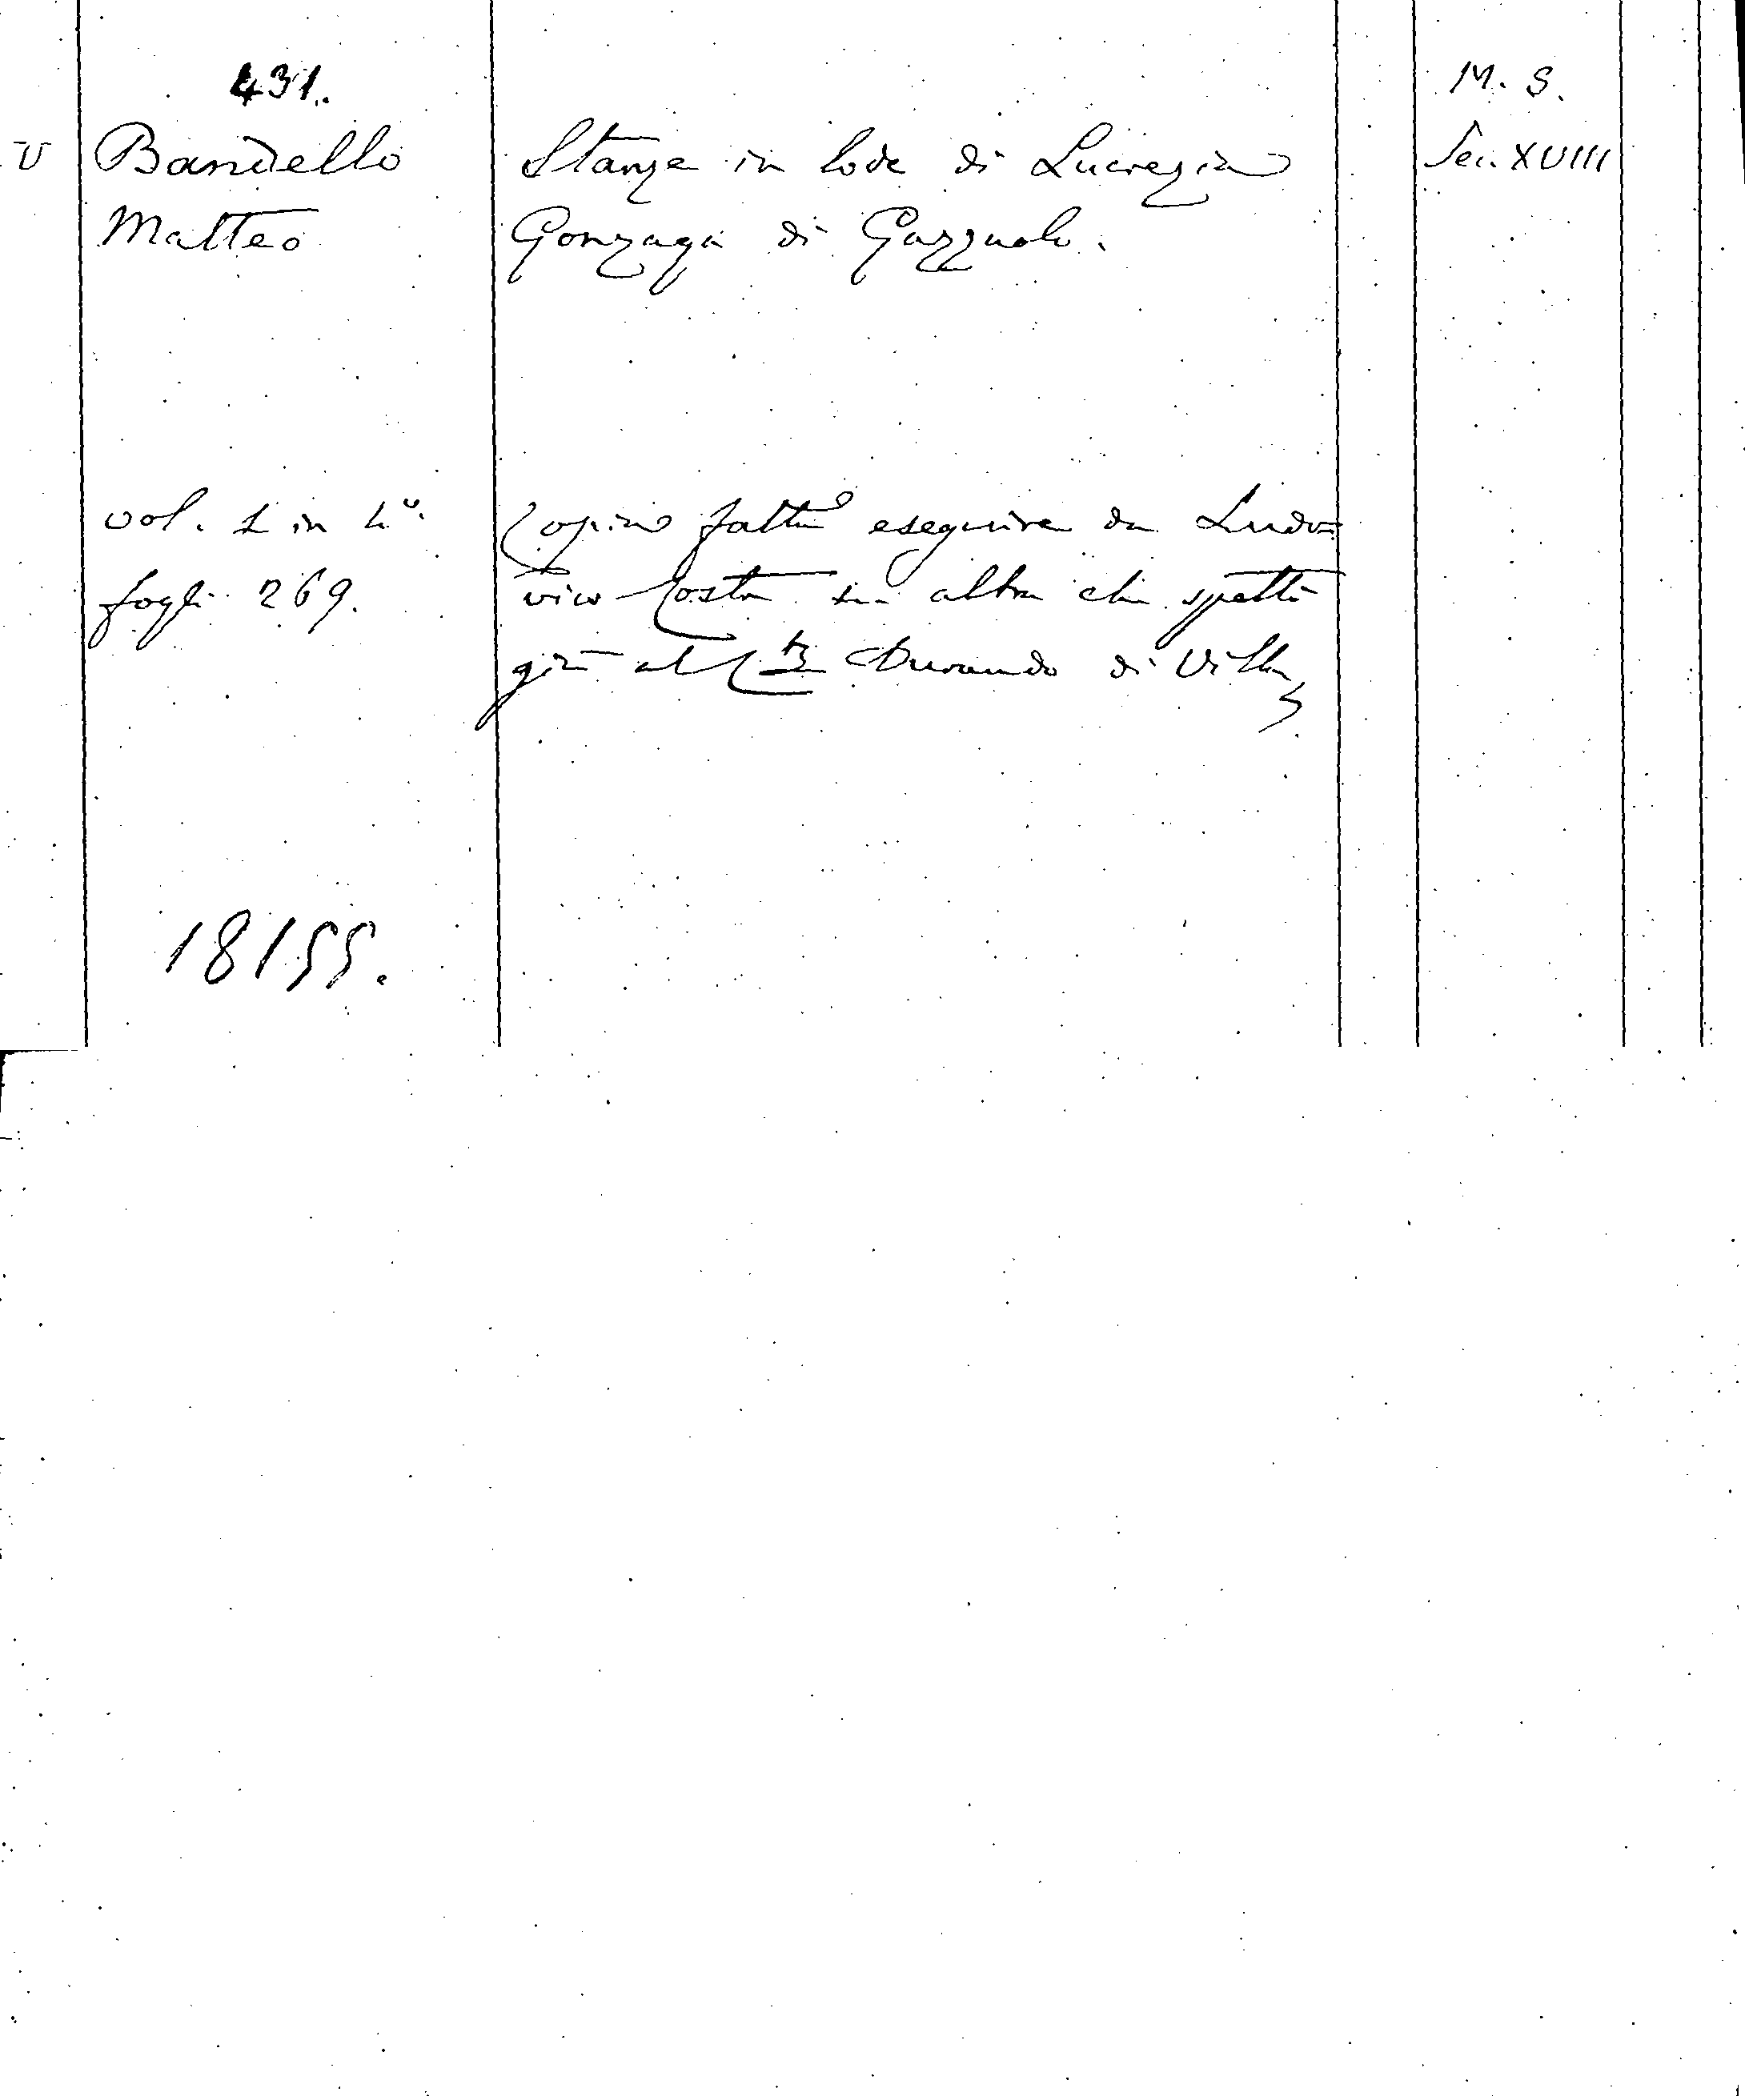 431.
M. S.
V Bandello Stanze in lode di Lucrezia Sec. XVIII
Matteo Gonzaga di Gazzuolo.
vol. 1 in 4º. Copia fatta eseguire da Ludo=
fogli 269. vico Costa su altra che spettò
già al Durando di Villa
18155.